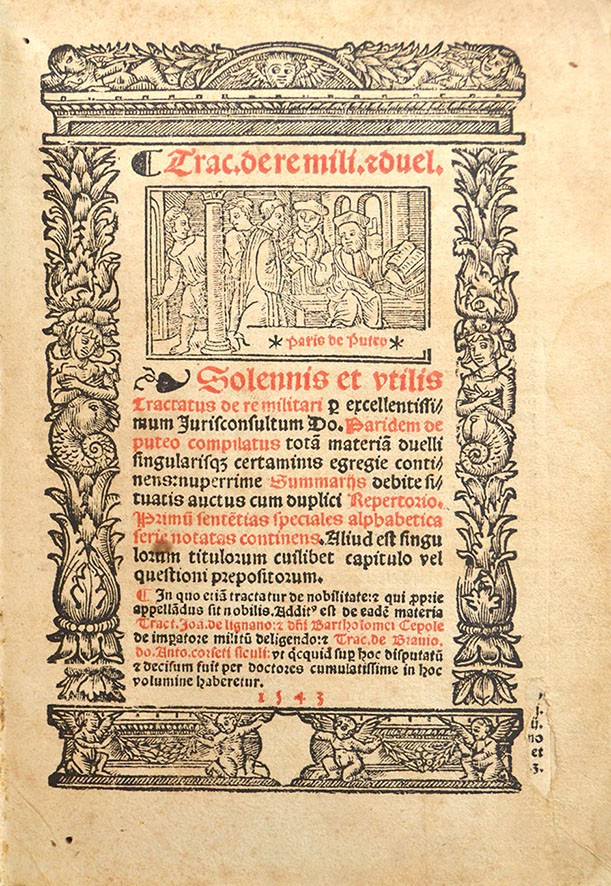 Trac.de re mili.⁊ duel.
* Paris de Puteo *
Solennis et vtilis
Tractatus de re militari ꝑ excellentissi⸗
mum Jurisconsultum Do. Paridem de
puteo compilatus totã materiã duelli
singularisqꝫ certaminis egregie conti⸗
nens:nuperrime Summarijs debite si⸗
tuatis auctus cum duplici Repertorio.
Primũ sentẽtias speciales alphabetica
serie notatas continens. Aliud est singu
lorum titulorum cuilibet capitulo vel
questioni prepositorum.
¶ In quo etiã tractatur de nobilitate:⁊ qui ꝓprie
appellãdus sit nobilis. Addit⁹ est de eadẽ materia
Tract. Joã. de lignano:⁊ dñi Bartholomei Cepole
de imꝑatore militũ deligendo:⁊ Trac. de
do. Anto. corseti siculi: vt qͥcquid suꝑ hoc disputatũ
⁊ decisum fuit per doctores cumulatissime in hoc
volumine haberetur.
1543
ij.
no
et
3.